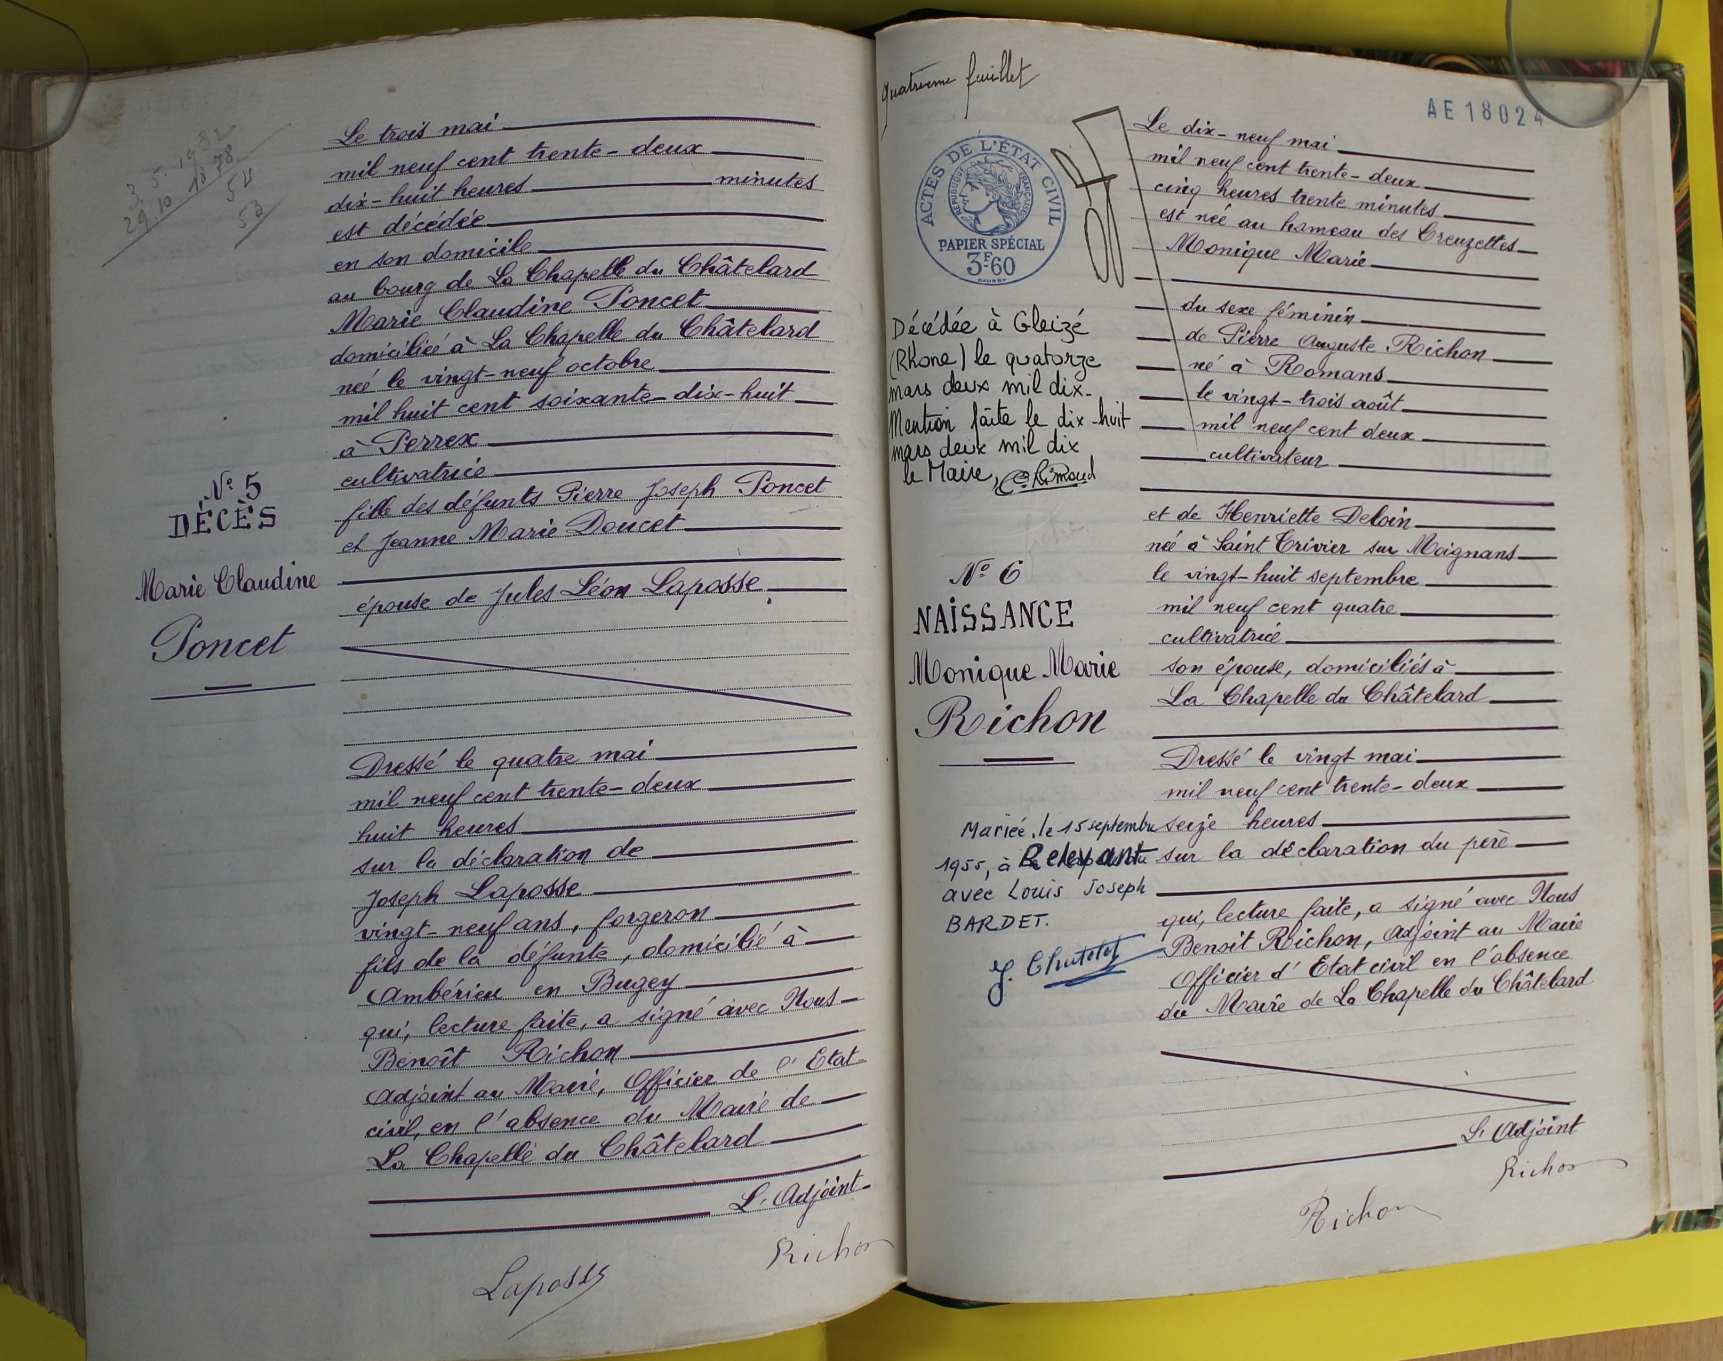 3. 5. 1932
29. 10 1878
54
53
Le trois mai
mil neuf cent trente-deux
dix-huit heures minutes
est décédée
en son domicile
au bourg de La Chapelle du Châtelard
Marie Claudine Poncet
domiciliée à La Chapelle du Châtelard
née le vingt-neuf octobre
mil huit cent soixante-dix-huit
à Perrex
cultivatrice
fille des défunts Pierre Joseph Poncet
et Jeanne Marie Doucet
épouse de Jules Léon Laposse.
Nº 5
DÉCÈS
Marie Claudine
Poncet
Dressé le quatre mai
mil neuf cent trente-deux
huit heures
sur la déclaration de
Joseph Laposse
vingt-neuf ans, forgeron
fils de la défunte, domicilié à
Ambérieu en Bugey
qui, lecture faite, a signé avec Nous
Benoît Richon
Adjoint au Maire, Officier de l'Etat
civil, en l'absence du Maire de
La Chapelle du Châtelard
L'Adjoint
Richon
Laposse
Quatrième feuillet
AE 18024
ACTES DE L'ÉTAT CIVIL
RÉPUBLIQUE FRANÇAISE
PAPIER SPÉCIAL
3F.60
Décédée à Gleizé
(Rhône) le quatorze
mars deux mil dix.
Mention faite le dix-huit
mars deux mil dix
le Maire,
Nº 6
NAISSANCE
Monique Marie
Richon
Mariée, le 15 septembre
1955, à Relevant
avec Louis Joseph
BARDET.
Le dix-neuf mai
mil neuf cent trente-deux
cinq heures trente minutes
est née au hameau des Creuzettes
Monique Marie
du sexe féminin
de Pierre Auguste Richon
né à Romans
le vingt-trois août
mil neuf cent deux
cultivateur
et de Henriette Deloin
née à Saint Trivier sur Moignans
le vingt-huit septembre
mil neuf cent quatre
cultivatrice
son épouse, domiciliés à
La Chapelle du Châtelard
Dressé le vingt mai
mil neuf cent trente-deux
seize heures
sur la déclaration du père
qui, lecture faite, a signé avec Nous
Benoit Richon, Adjoint au Maire
Officier d'Etat civil en l'absence
du Maire de La Chapelle du Châtelard
L'Adjoint
Richon
Richon